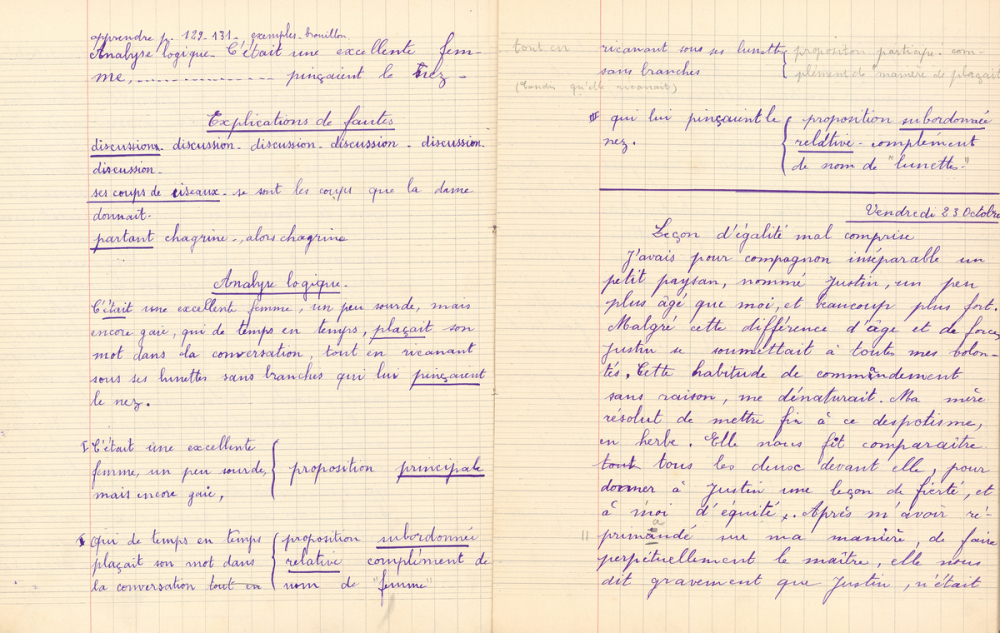 apprendre p. 129-131-, exemples-brouillon.
Analyse logique- C'était une excellente fem-
me, .................... pinçaient le nez-
Explications de fautes
discussions- discussion- discussion- discussion- discussion.
discussion-
ses coups de ciseaux- se sont les coups que la dame
donnait.
partant chagrine-, alors chagrine
Analyse logique.
C'était une excellente femme, un peu sourde, mais
encore gaie, qui de temps en temps, plaçait son
mot dans la conversation, tout en ricanant
sous ses lunettes sans branches qui lui pinçaient
le nez.
I C'était une excellente
femme, un peu sourde, proposition principale
mais encore gaie,
II qui de temps en temps proposition subordonnée
plaçait son mot dans relative complément de
la conversation tout en nom de "femme"
tout en ricanant sous ses lunettes proposition particpe. com-
sans branches plément de manière de plaçait
(tandis qu'elle ricanait)
III qui lui pinçaient le proposition subordonnée
nez. relative- complément
de nom de "lunettes"
Vendredi 23 Octobre
Leçon d'égalité mal comprise
J'avais pour compagnon inséparable un
petit paysan, nommé Justin, un peu
plus âgé que moi, et beaucoup plus fort.
Malgré cette différence d'âge et de force,
Justin se soumettait à toutes mes volon-
tés. Cette habitude de commandement
sans raison, me dénaturait. Ma mère
résolut de mettre fin à ce despotisme,
en herbe. Elle nous fit comparaître
tout tous les deux devant elle, pour
donner à Justin une leçon de fierté, et
à moi d'équité. Après m'avoir ré-
a
primandé sur ma manière, de faire
perpétuellement le maître, elle nous
dit gravement que Justin, n'était